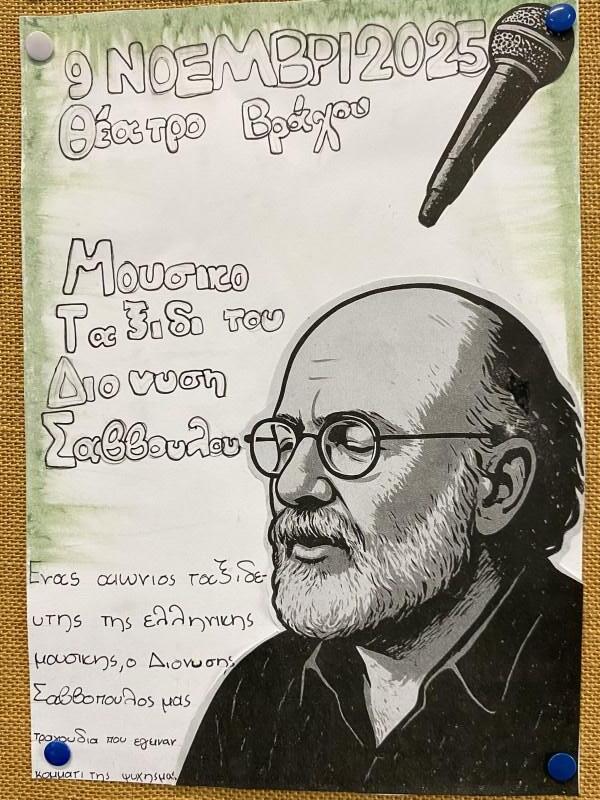 9 ΝΟΕΜΒΡΙ 2025
Θέατρο Βράχου
Μουσικο
Ταξιδι του
Διονυση
Σαββουλου
Ενας αιωνιος ταξιδε-
υτης της ελληνικης
μουσικης, ο Διονυσης
Σαββοπουλος μας
τραγουδια που εγιναν
κομματι της ψυχης μας